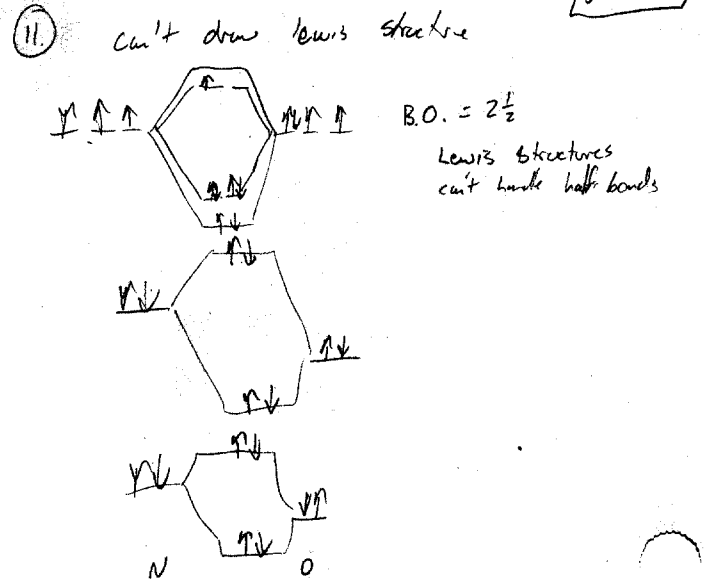 11.
can't draw lewis structure
B.O. = 2½
Lewis structures
can't handle half-bonds
N O